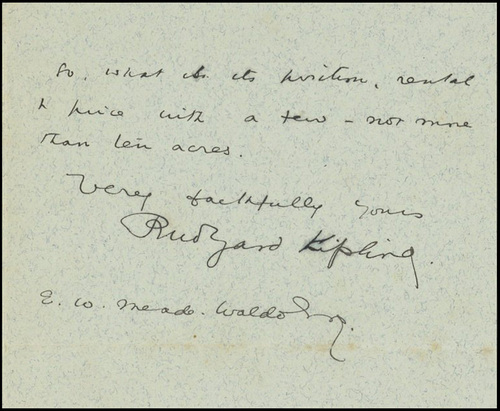 So, what is its position, rental
& price with a few - not more
than ten acres.
Very faithfully yours
Rudyard Kipling.
E. W. Meade-Waldo Esq.